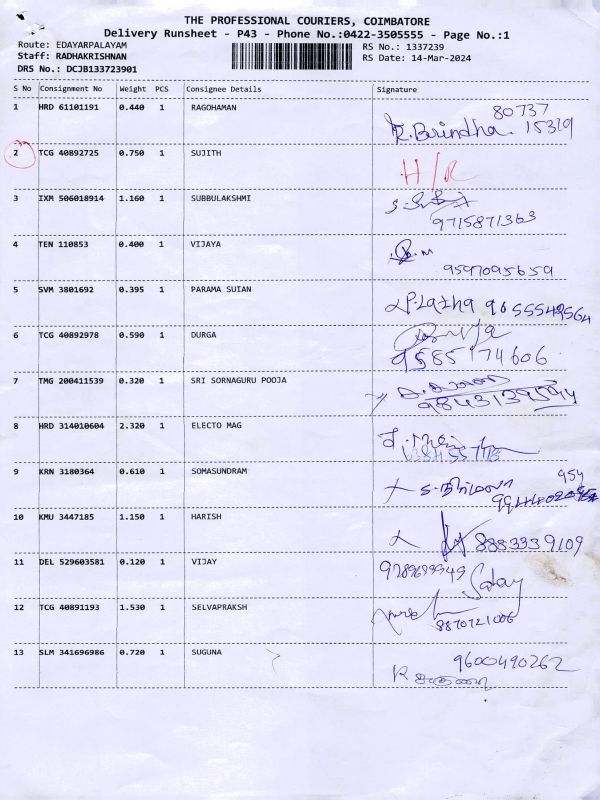 THE PROFESSIONAL COURIERS, COIMBATORE
Delivery Runsheet - P43 - Phone No.:0422-3505555 - Page No.:1
Route: EDAYARPALAYAM
RS No.: 1337239
Staff: RADHAKRISHNAN
RS Date: 14-Mar-2024
DRS No.: DCJB133723901
S No Consignment No Weight PCS Consignee Details Signature
1 HRD 61101191 0.440 1 RAGOHAMAN 80737
K. Birindha. 15319
2 TCG 40892725 0.750 1 SUJITH H/R
3 IXM 506018914 1.160 1 SUBBULAKSHMI
9715871363
4 TEN 110853 0.400 1 VIJAYA
9597095659
5 SVM 3801692 0.395 1 PARAMA SUIAN
P.Latha 9655549564
6 TCG 40892978 0.590 1 DURGA Durga
9585174606
7 TMG 200411539 0.320 1 SRI SORNAGURU POOJA
8 HRD 314010604 2.320 1 ELECTO MAG
9 KRN 3180364 0.610 1 SOMASUNDRAM
954
S. நிர்மலா
10 KMU 3447185 1.150 1 HARISH
8883339109
11 DEL 529603581 0.120 1 VIJAY 9789699949
12 TCG 40891193 1.530 1 SELVAPRAKSH
8870721006
13 SLM 341696986 0.720 1 SUGUNA 9600490262